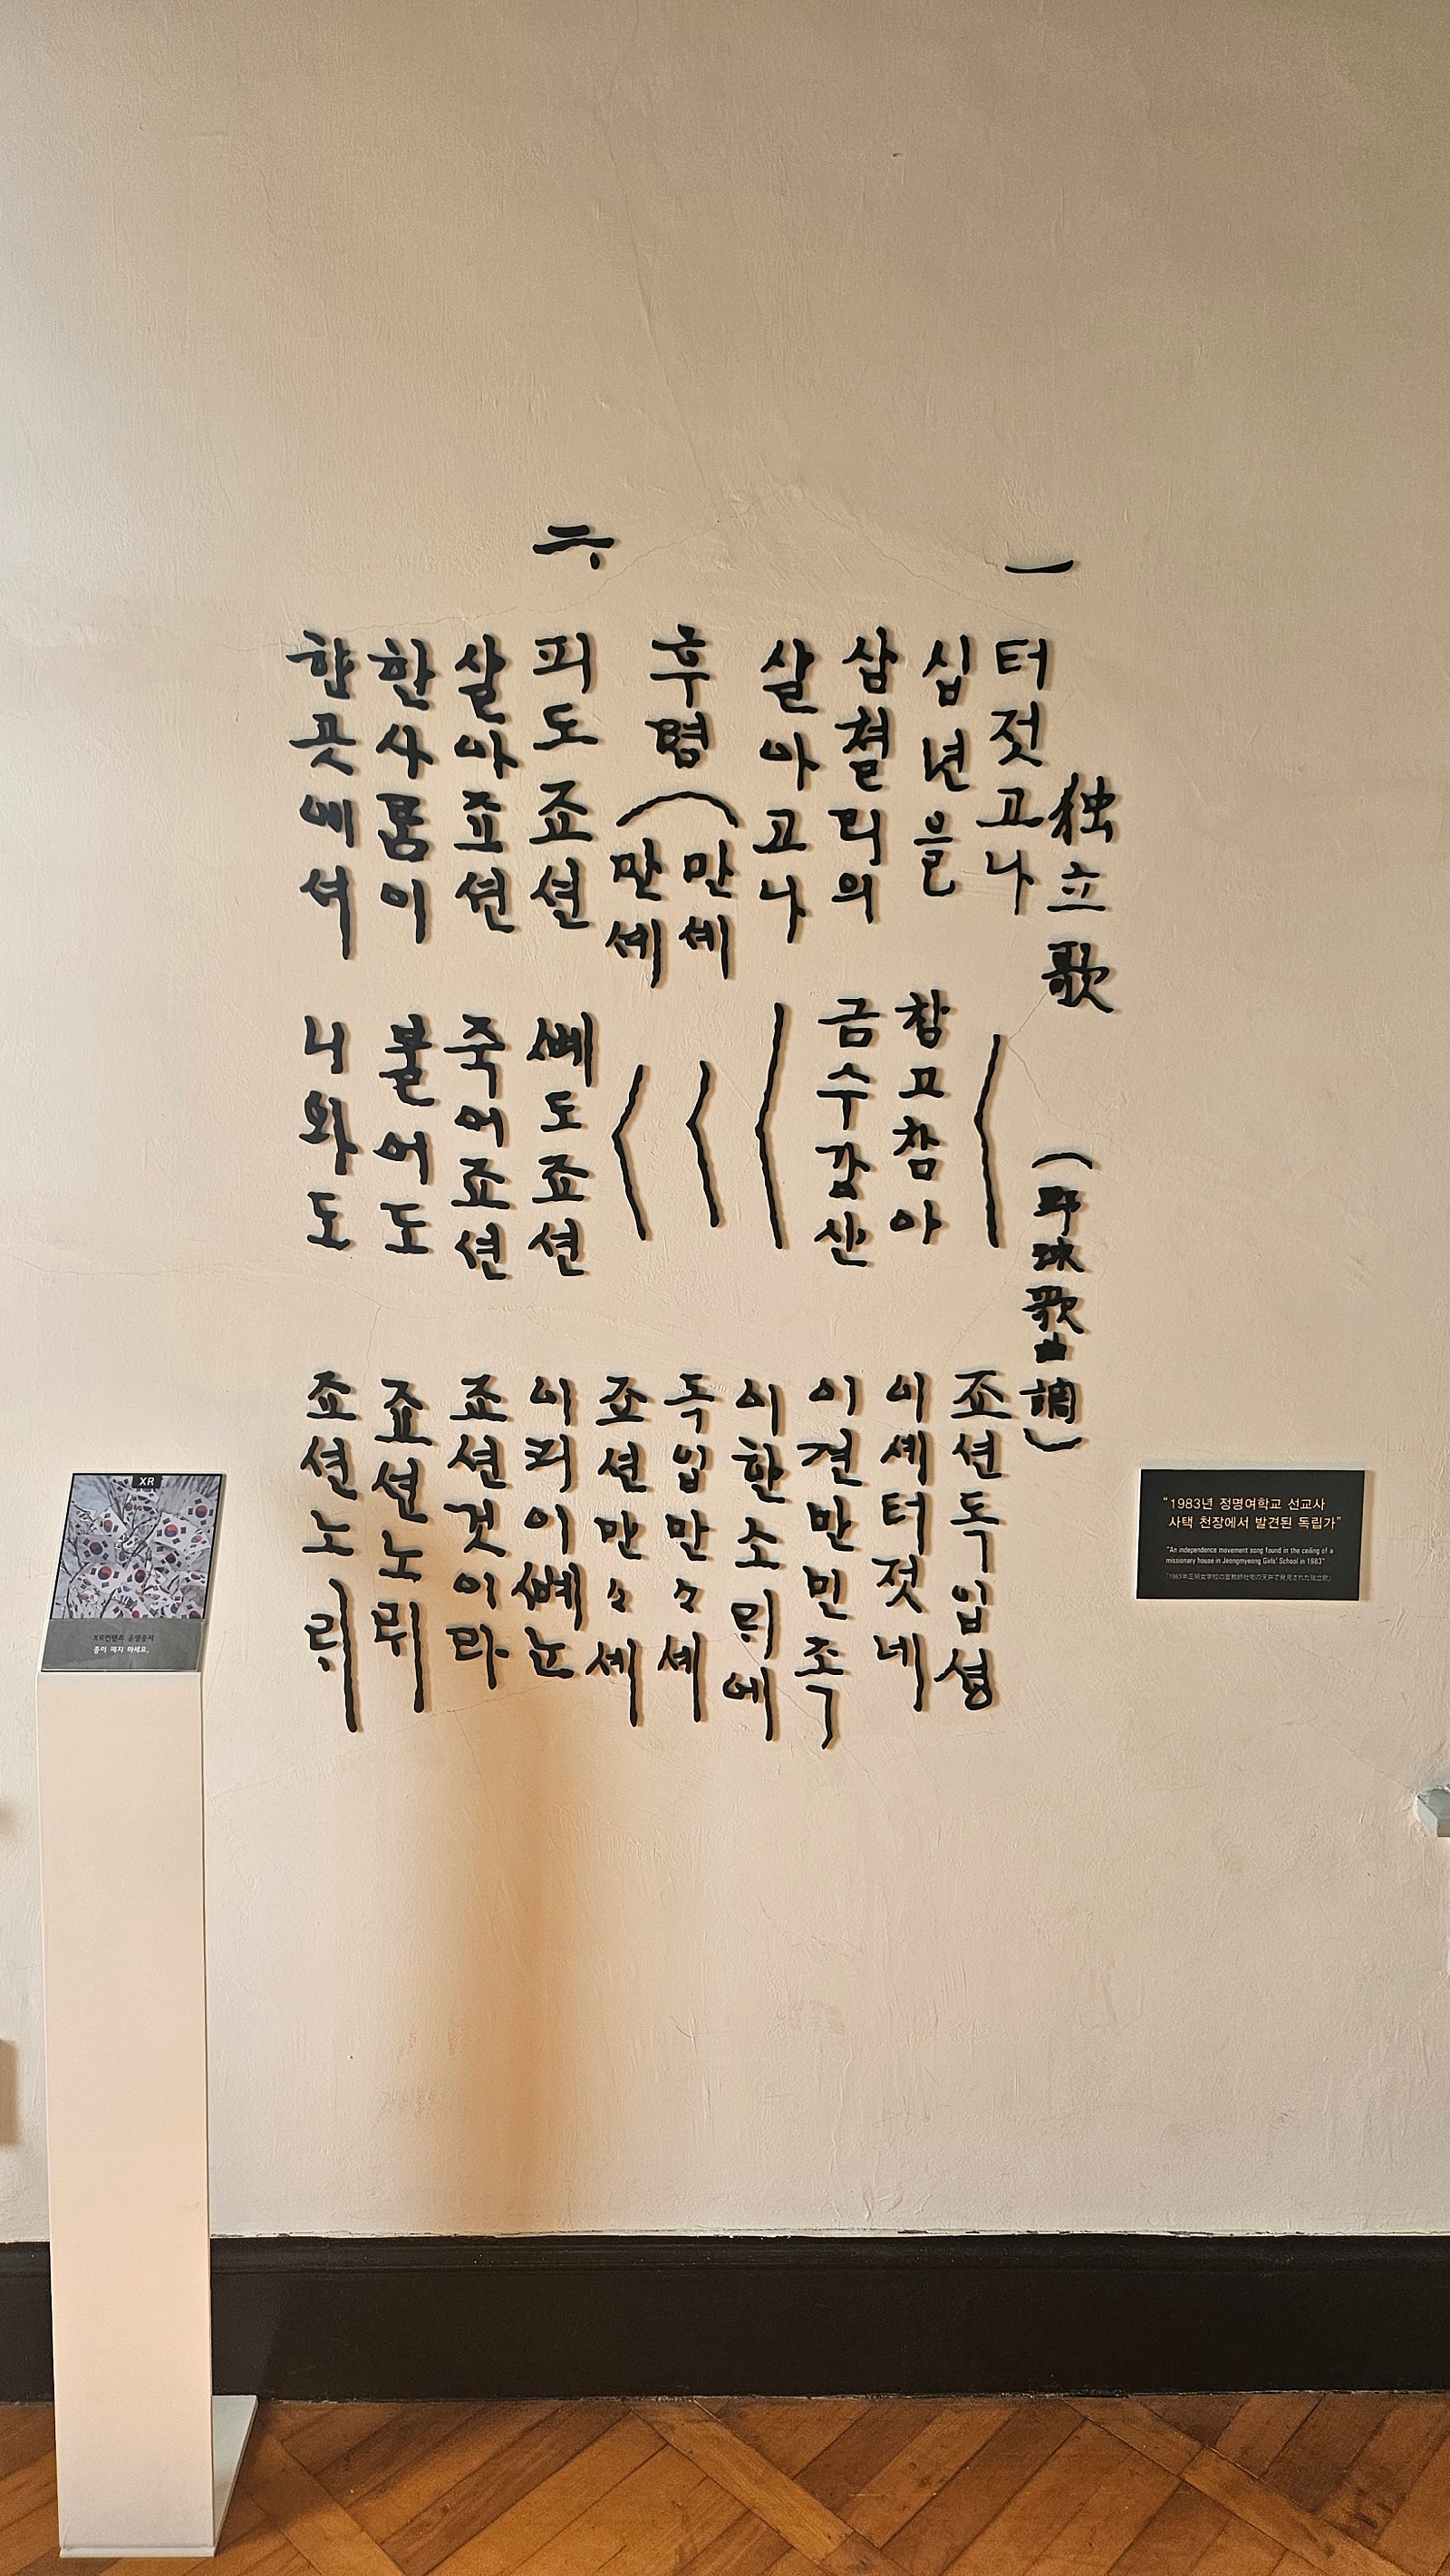 独立歌 (野球歌曲調)
一 터젓고나 〱 죠션독입셩
십년을 참고참아 이셰터젓네
삼쳘리의 금수강산 이쳔만민족
살아고나 〱 이한소릐에
후렴 ( 만셰 〱 독입만々셰
만셰 〱 죠션만々셰
二 피도죠션 뼤도죠션 이피이뼤는
살아죠션 죽어죠션 죠션것이라
한사롬이 불어도 죠션노릐
한곳에셔 나와도 죠션노릐
XR
XR컨텐츠 운영중지
종이 떼지 마세요.
“1983년 정명여학교 선교사
사택 천장에서 발견된 독립가”
"An independence movement song found in the ceiling of a
missionary house in Jeongmyeong Girls' School in 1983"
「1983年正明女学校の宣教師社宅の天井で発見された独立歌」